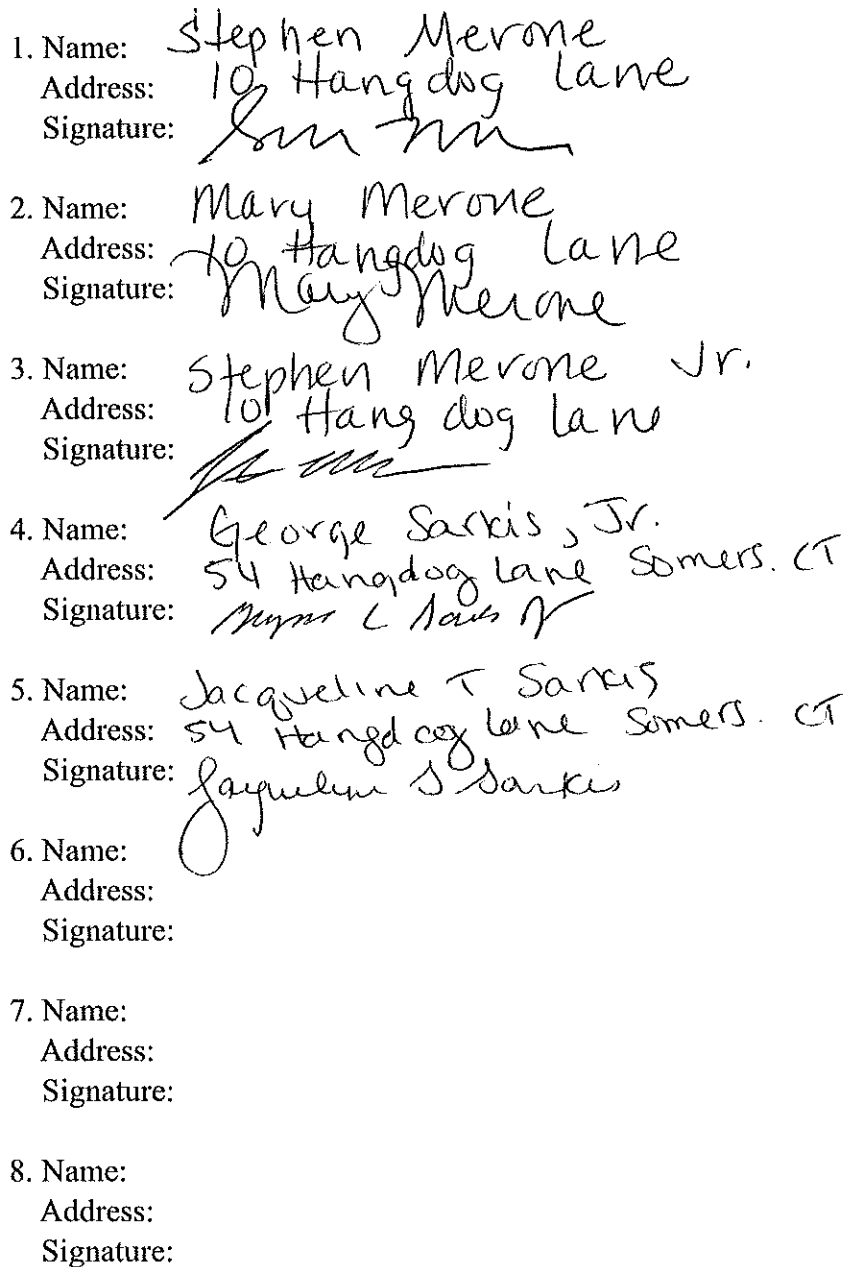 1. Name: Stephen Merone
Address: 10 Hangdog Lane
Signature:
2. Name: Mary Merone
Address: 10 Hangdog Lane
Signature: Mary Merone
3. Name: Stephen Merone Jr.
Address: 10 Hang dog Lane
Signature:
4. Name: George Sarkis, Jr.
Address: 54 Hangdog Lane Somers. CT
Signature:
5. Name: Jacqueline T Sarkis
Address: 54 Hangdog Lane Somers. CT
Signature: Jacqueline S Sarkis
6. Name:
Address:
Signature:
7. Name:
Address:
Signature:
8. Name:
Address:
Signature: